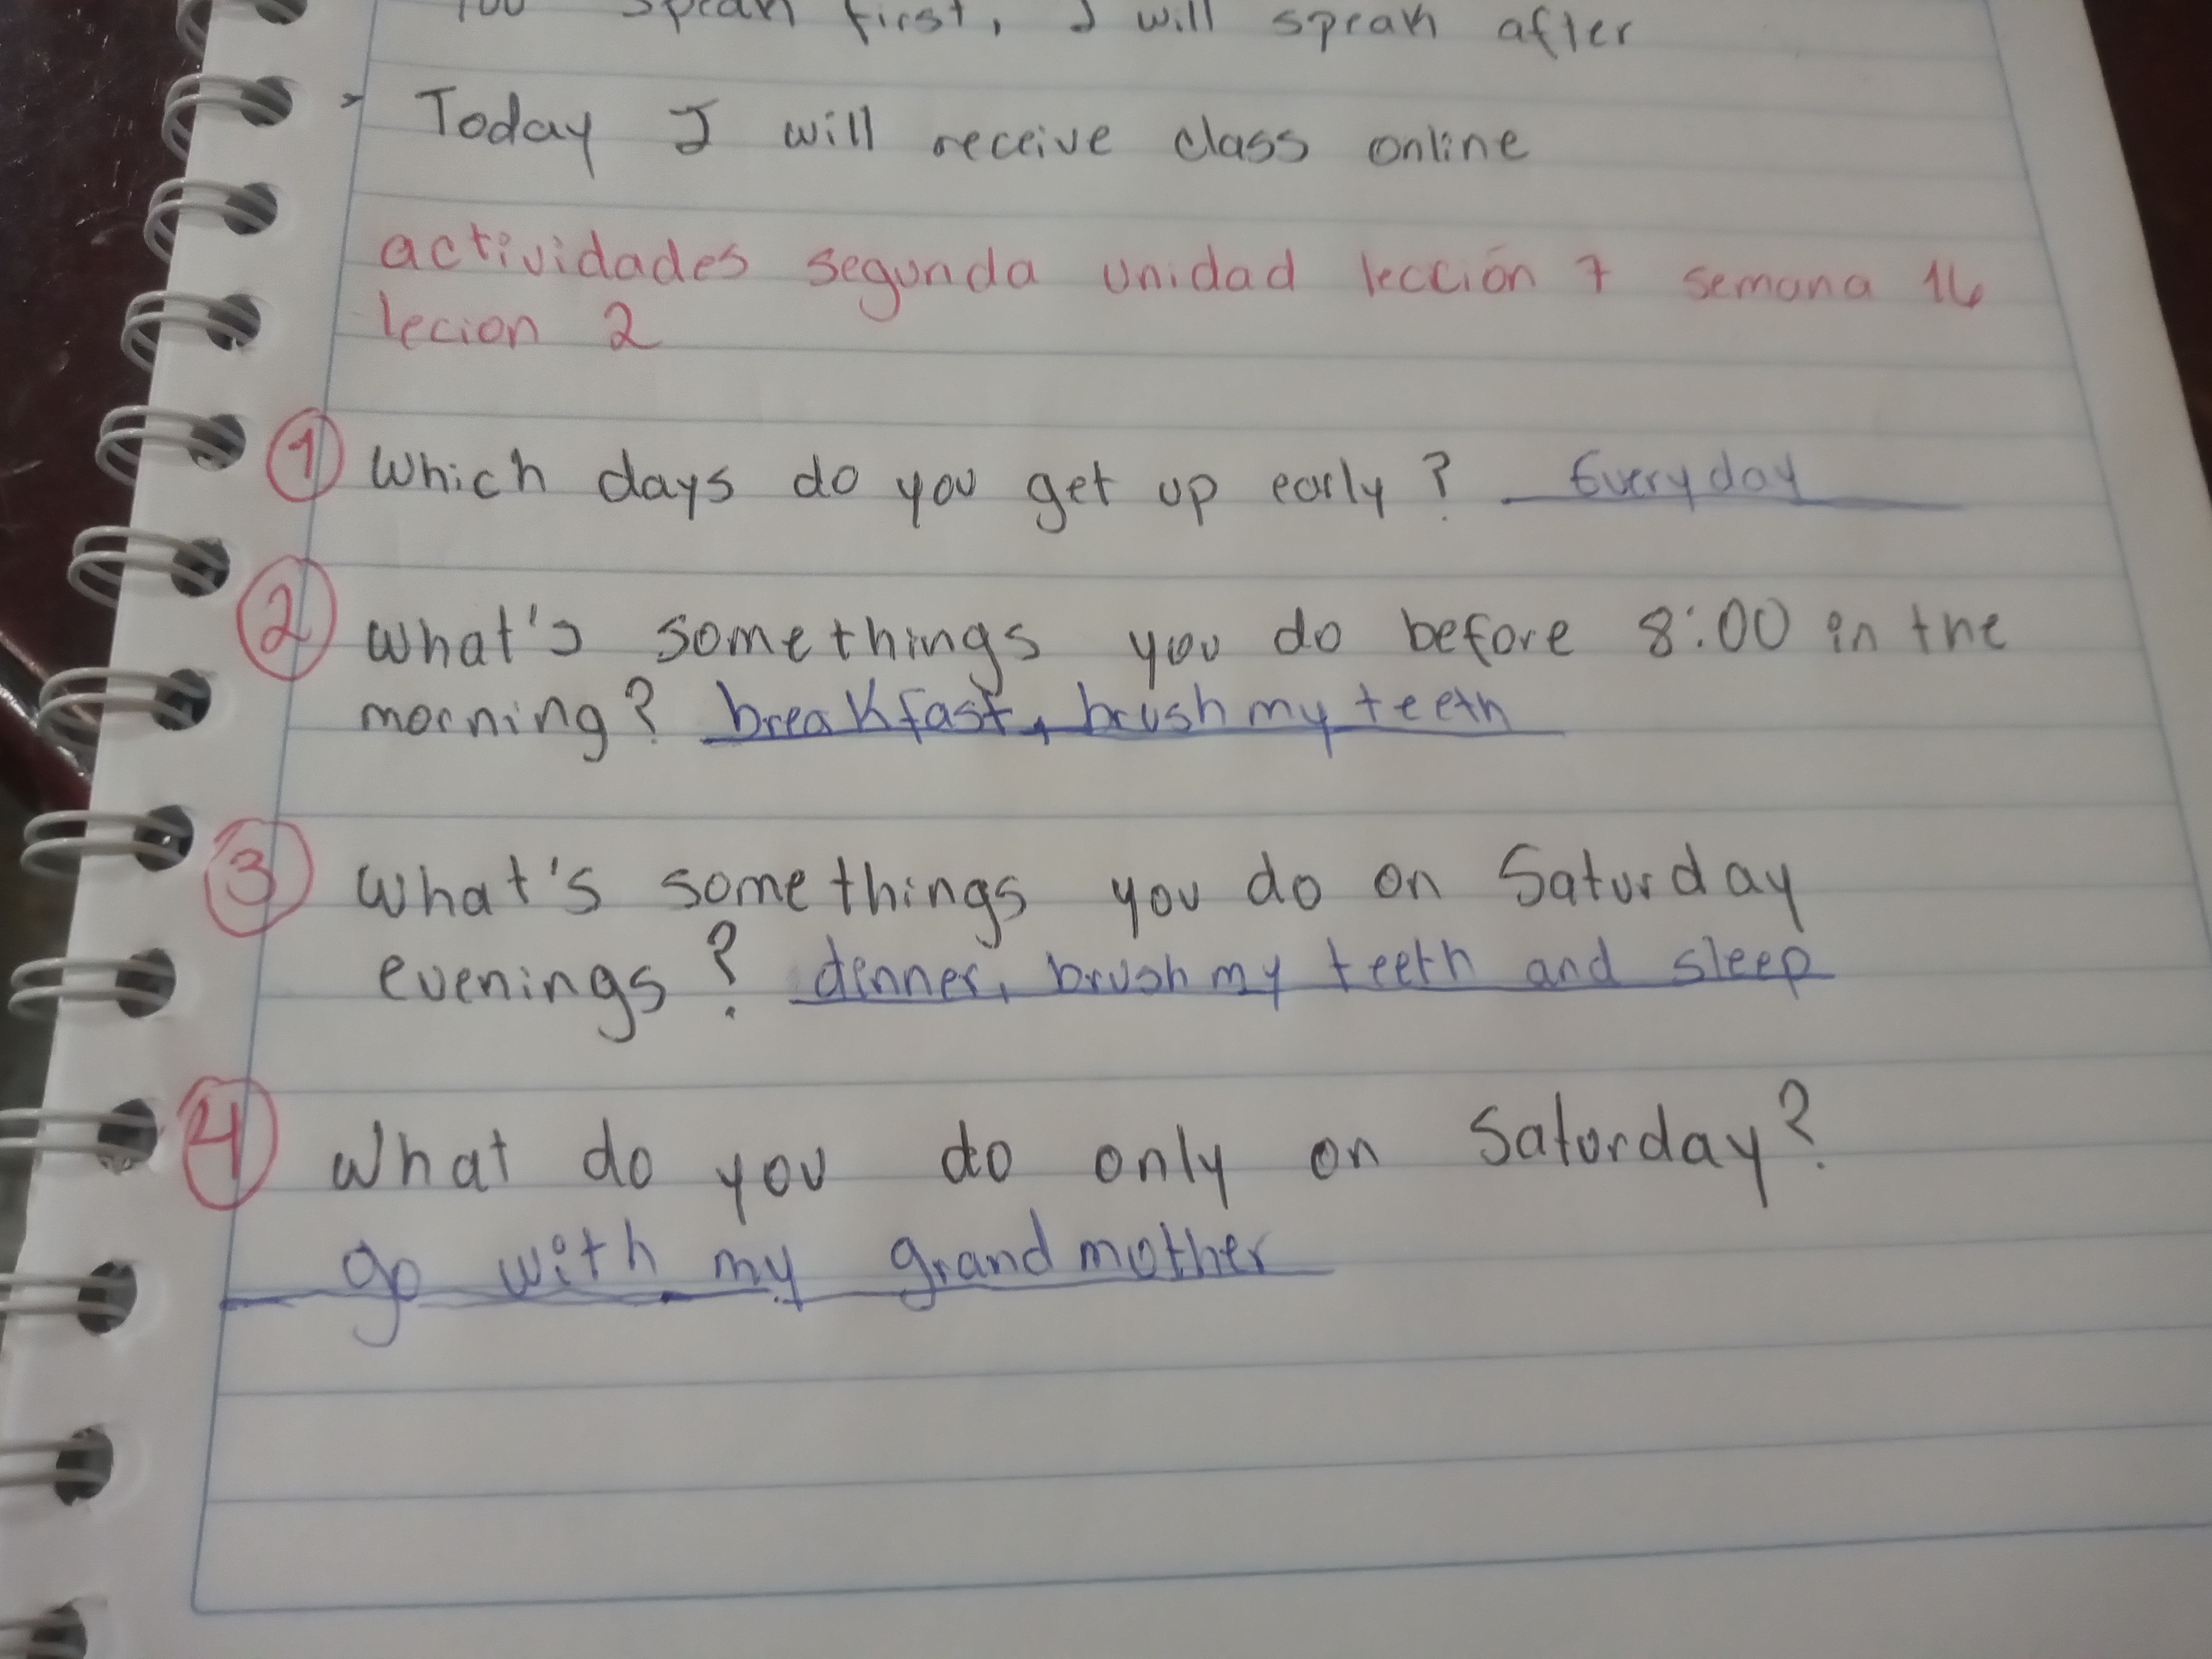 You speak first, I will speak after
Today I will receive class online
actividades segunda unidad lección 7 semana 16
lecion 2
1 Which days do you get up early? Everyday
2 What's somethings you do before 8:00 in the
morning? breakfast, brush my teeth
3 What's somethings you do on Saturday
evenings? dinner, brush my teeth and sleep
4 What do you do only on Saturday?
go with my grandmother